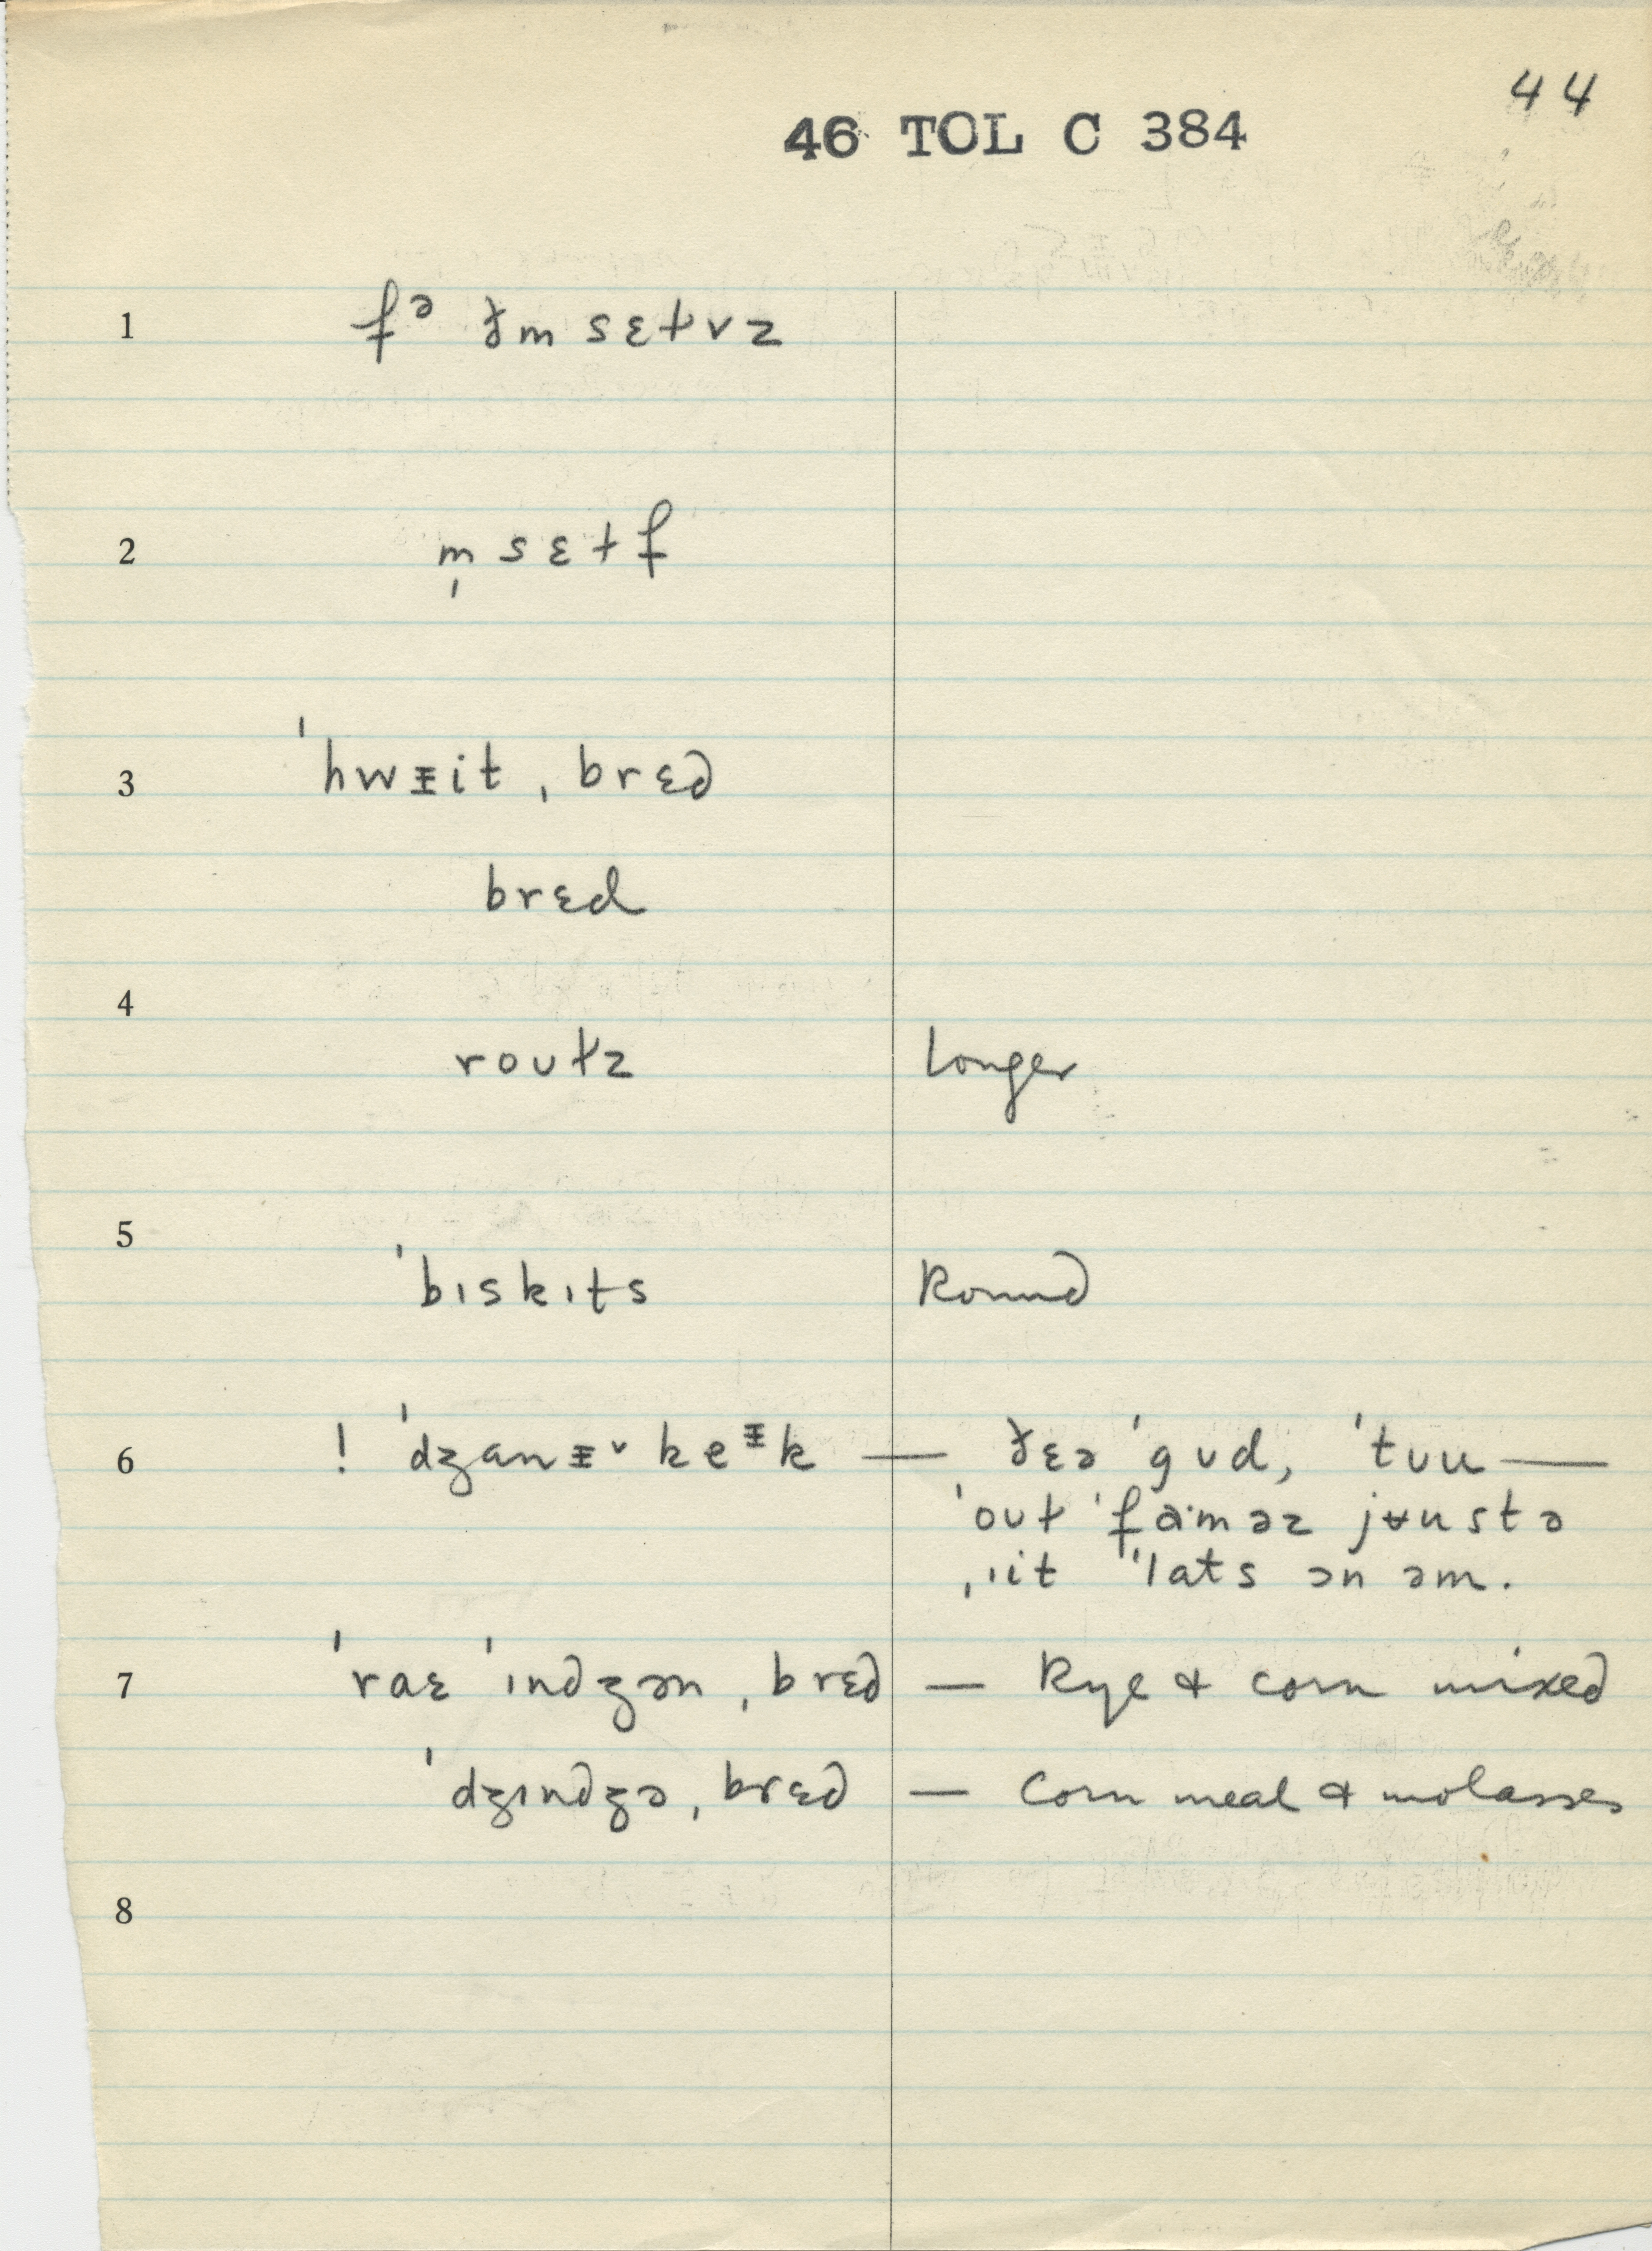 44
46 TOL C 384
1 fᵊ ðm̩sɛɫvz
2 m̩sɛɫf
3 ˈhwᵻit ˌbrɛd
brɛd
4
roʊɫz longer
5
ˈbɪskɪts Round
6 ! ˈdʒanᵻ ˅ keᵻk — ðɛə ˈgʊd, ˈtʊu —
ˈoʊɫ ˈfa·məz jʉustə
ˌˈit ˈlats ən əm.
7 ˈraɛ ˈɪndʒən ˌbrɛd — Rye & corn mixed
ˈdʒɪndʒə ˌbrɛd — Corn meal & molasses
8